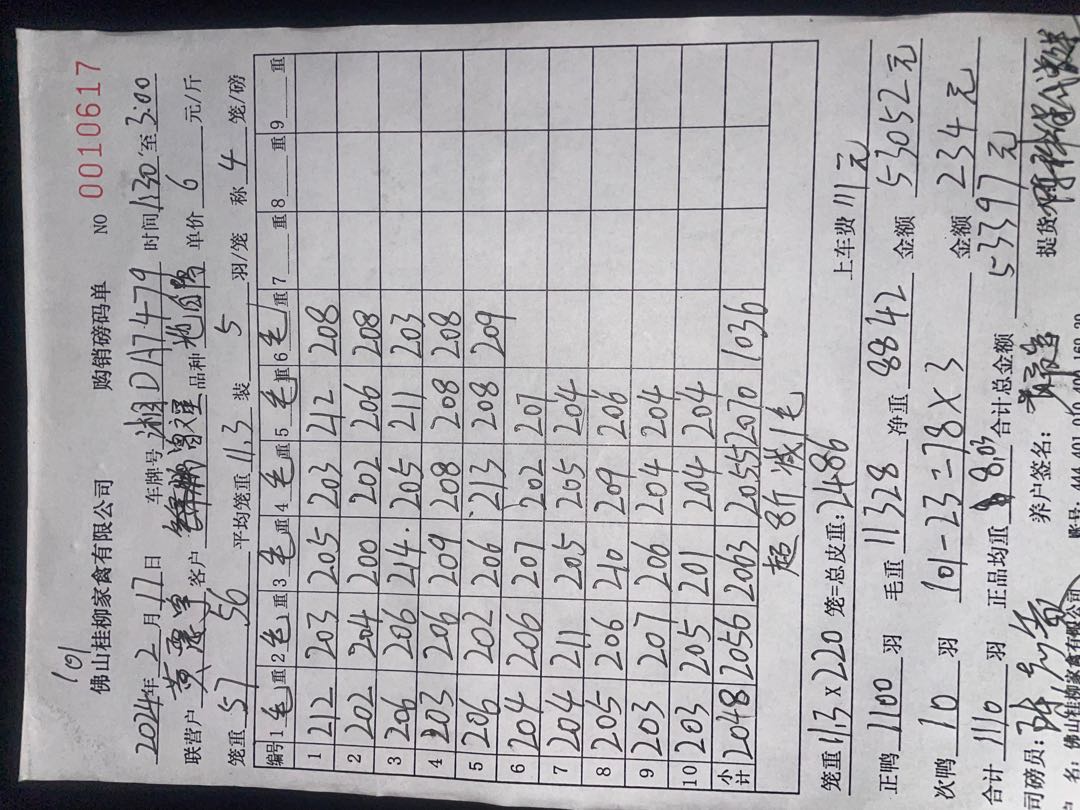 101
佛山桂柳家禽有限公司 购销磅码单 NO 0010617
2024年 2月 17日 车牌号 湘DA7479 时间 1130 至 3:00
联营户 客户 品种 单价 6 元/斤
笼重 57 56 平均笼重 11.3 装 5 羽/笼 称 4 笼/磅
编号 1 毛重 2 毛重 3 毛重 4 毛重 5 毛重 6 毛重 7 重 8 重 9 重
1 212 203 205 203 212 208
2 202 204 200 202 206 208
3 206 206 214 205 211 203
4 203 206 209 208 208 208
5 206 202 206 213 208 209
6 204 206 207 202 207
7 204 211 205 205 204
8 205 206 210 209 206
9 203 207 206 204 204
10 203 205 201 204 204
小计 2048 2056 2063 2055 2070 1036
超8斤减1毛
笼重 11.3 x 220 笼=总皮重: 2486 上车费 111 元
正鸭 1100 羽 毛重 11328 净重 8842 金额 53052 元
次鸭 10 羽 101-23=78×3 金额 234 元
合计 1110 羽 正品均重 8.03 合计总金额 53397 元
司磅员: 养户签名: 提货
名: 佛山桂柳家禽有限公司